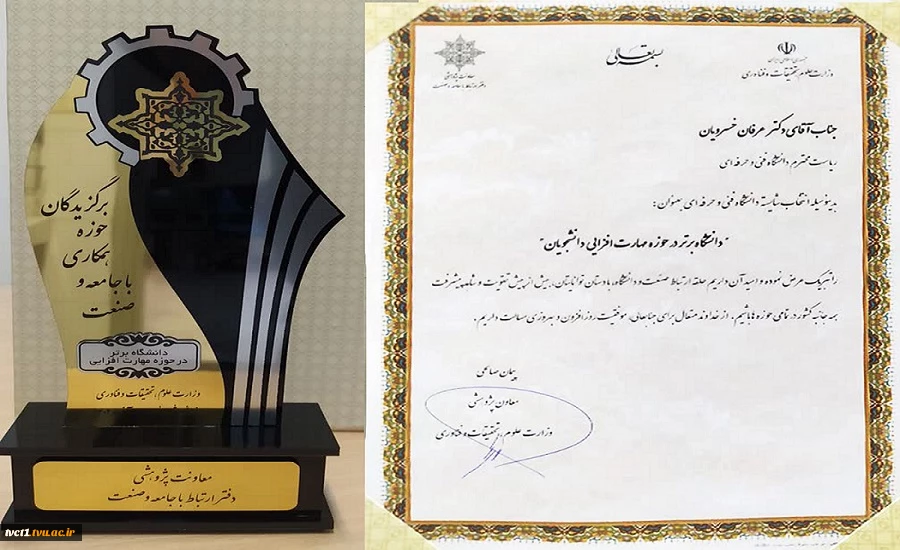 برگزیدگان
حوزه
همکاری
با جامعه و
صنعت
دانشگاه برتر
در حوزه مهارت افزایی
وزارت علوم، تحقیقات و فناوری
معاونت پژوهشی
دفتر ارتباط با جامعه و صنعت
tvct1.tvu.ac.ir
بسمه تعالی
جمهوری اسلامی ایران
وزارت علوم، تحقیقات و فناوری
معاونت پژوهشی
دفتر ارتباط با جامعه و صنعت
جناب آقای دکتر عرفان خسرویان
ریاست محترم دانشگاه فنی و حرفه ای
بدینوسیله انتخاب شایسته دانشگاه فنی و حرفه ای بعنوان :
"دانشگاه برتر در حوزه مهارت افزایی دانشجویان"
را تبریک عرض نموده و امید آن داریم حلقه ارتباط صنعت و دانشگاه، با دستان تواناتان، بیش از پیش تقویت و شاهد پیشرفت
همه جانبه کشور در تمامی حوزه ها باشیم . از خداوند متعال برای جنابعالی، موفقیت روز افزون و بهروزی مسالت داریم .
پیمان صالحی
معاون پژوهشی
وزارت علوم، تحقیقات و فناوری